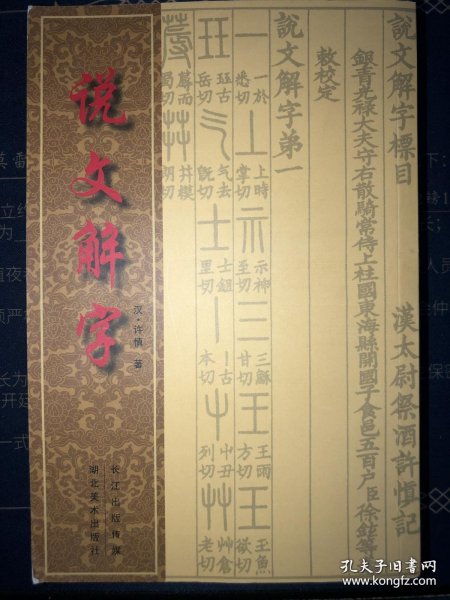 说文解字
汉·许慎 著
长江出版传媒
湖北美术出版社
說文解字標目 漢太尉祭酒許慎記
銀青光祿大夫守右散騎常侍上柱國東海縣開國子食邑五百户臣徐鉉等
敕校定
說文解字弟一
一 一於悉切 丄 上時掌切 示 示神至切 三 三穌甘切 王 王雨方切 王 玉魚欲切
玨 珏古岳切 气 气去旣切 士 士鉏里切 丨 丨古本切 屮 屮丑列切 艸 艸倉老切
蓐 蓐而蜀切 茻 茻模朗切
孔夫子旧书网
www.kongfz.com